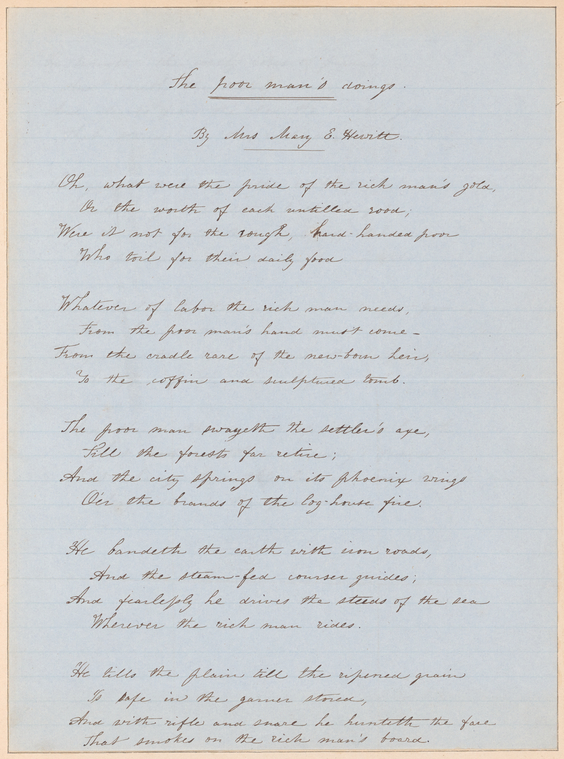 The poor man's doings.
By Mrs Mary E. Hewitt.
Oh, what were the pride of the rich man's gold,
Or the worth of each untilled rood;
Were it not for the rough, hard-handed poor
Who toil for their daily food
Whatever of labor the rich man needs,
From the poor man's hand must come—
From the cradle rare of the new-born heir,
To the coffin and sculptured tomb.
The poor man swayeth the settler's axe,
Till the forests far retire;
And the city springs on its phoenix wings
O'er the brands of the log-house fire.
He bandeth the earth with iron roads,
And the steam-fed courser guides;
And fearlessly he drives the steeds of the sea
Wherever the rich man rides.
He tills the plain till the ripened grain
Is safe in the garner stored,
And with rifle and snare he hunteth the fare
That smokes on the rich man's board.